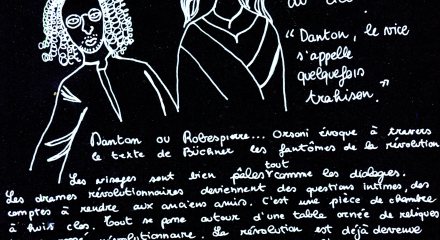 "Danton, le vice
s'appelle
quelquefois
trahison."
Danton ou Robespierre... Orsoni évoque à travers
le texte de Büchner les fantômes de la révolution
tout
Les visages sont bien pâles comme les dialogues.
Les drames révolutionnaires deviennent des questions intimes, des
comptes à rendre aux anciens amis. C'est une pièce de chambre
à huis clos. Tout se pose autour d'une table ornée de reliques
révolutionnaire. La révolution est déjà devenue